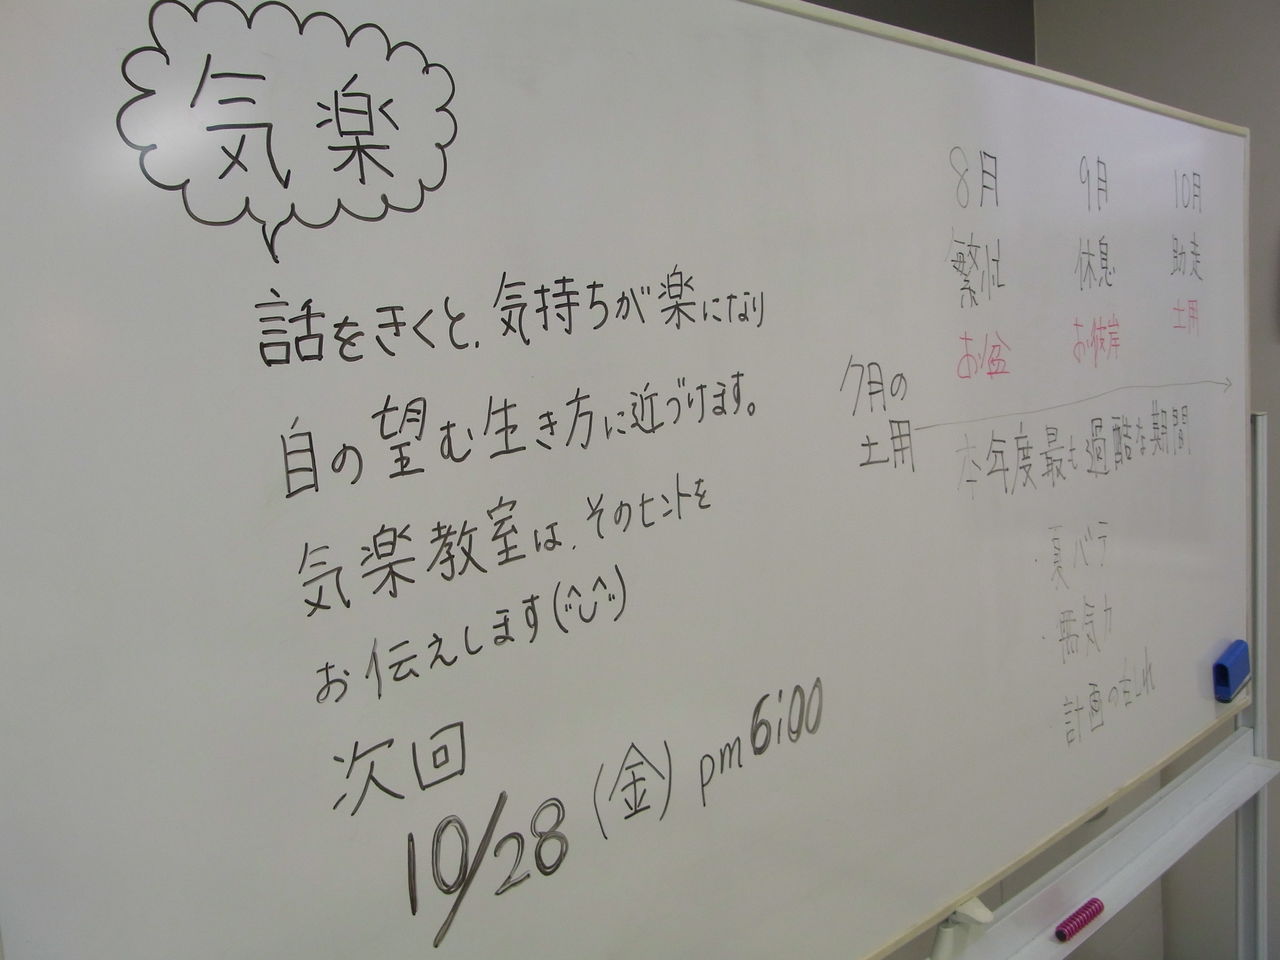 気楽
話をきくと、気持ちが楽になり
自の望む生き方に近づけます。
気楽教室は、そのヒントを
お伝えします(^◡^)
次回
10/28(金)pm6:00
8月 9月 10月
繁忙 休息 助走
お盆 お彼岸 土用
7月の
土用
本年度最も過酷な期間
・夏バテ
・無気力
・計画の乱れ